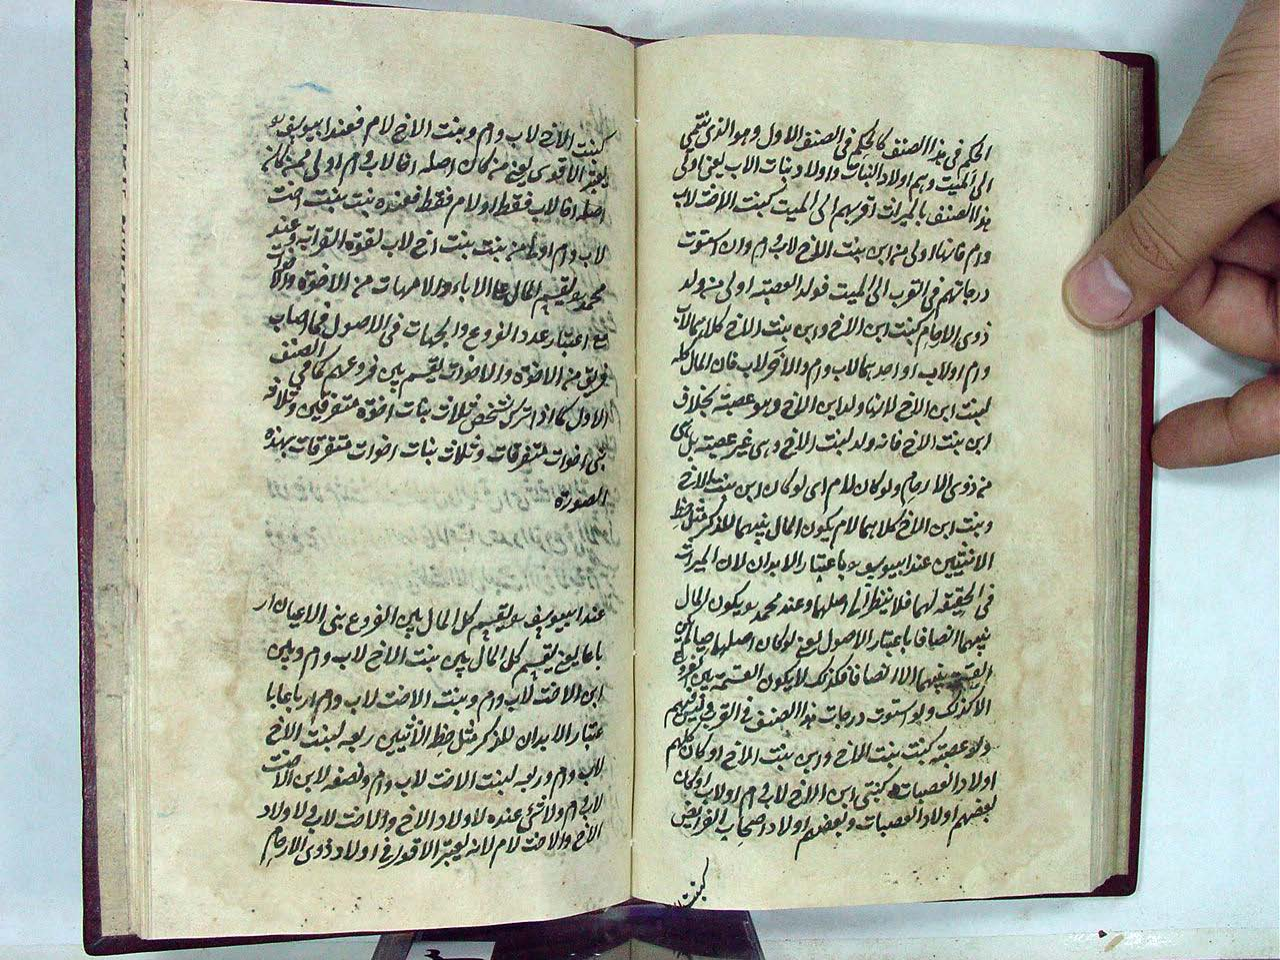 الحكم في هذا الصنف كالحكم في الصنف الاول وهو الذي ينتمي
الى الميت وهم اولاد البنات واولاد بنات الاب يعني اولى
هذا الصنف بالميراث اقربهم الى الميت كبنت الاخت لاب
وام فانها اولى من ابن بنت الاخ لاب وام وان استوت
درجاتهم في القرب الى الميت فولد العصبة اولى من ولد
ذوي الارحام كبنت ابن الاخ وابن بنت الاخ كلاهما لاب
وام او لاب او احدهما لاب وام والآخر لاب فان المال كله
لبنت ابن الاخ لانها ولد ابن الاخ وهو عصبة بخلاف
ابن بنت الاخ فانه ولد لبنت الاخ وهي غير عصبة بل هي
من ذوي الارحام ولو كان لام اى لو كان ابن بنت الاخ
وبنت ابن الاخ كلاهما لام يكون المال بينهما للذكر مثل حظ
الانثيين عند ابيوسف باعتبار الابدان لان الميراث
في الحقيقة لهما فلا ينظر الى اصلهما وعند محمد يكون المال
بينهما انصافا باعتبار الاصول يعني لو كان اصلهما
القسمة بينهما الا انصافا فكذلك لا يكون القسمة بين الفروع
الا كذلك ولو استوت درجات هذا الصنف في القرب وليس فيهم
ولد عصبة كبنت بنت الاخ وابن بنت الاخ او كان كلهم
اولاد العصبات كبنتي ابن الاخ لاب وام او لاب او كان
بعضهم اولاد العصبات وبعضهم اولاد اصحاب الفرائض
كبنت
كبنت الاخ لاب وام وبنت الاخ لام فعند ابيوسف
يعتبر الاقوى يعني من كان اصله اخا لاب وام اولى ممن كان
اصله اخا لاب فقط او لام فقط فعنده بنت بنت اخت
لاب وام اولى من بنت بنت اخ لاب لقوة القرابة وعند
محمد يقسم المال على الاباء والامهات من الاخوة والاخوات
مع اعتبار عدد الفروع والجهات في الاصول فما اصاب
فريق من الاخوة والاخوات يقسم بين فروعهم كما في الصنف
الاول كما اذا ترك شخص ثلاث بنات اخوة متفرقين وثلاثة
بني اخوات متفرقات وثلاث بنات اخوات متفرقات بهذه
الصورة
عند ابيوسف يقسم كل المال بين الفروع بنى الاعيان ار
باعا يعني يقسم كل المال بين بنت الاخ لاب وام وبين
ابن الاخت لاب وام وبنت الاخت لاب وام ارباعا با
عتبار الابدان للذكر مثل حظ الأنثيين ربعه لبنت الاخ
لاب وام وربعه لبنت الاخت لاب وام ونصفه لابن الاخت
لاب وام ولا شئ عنده لاولاد الاخ والاخت لاب ولا لاولاد
الاخ والاخت لام لانه يعتبر الاقوى في اولاد ذوي الارحام